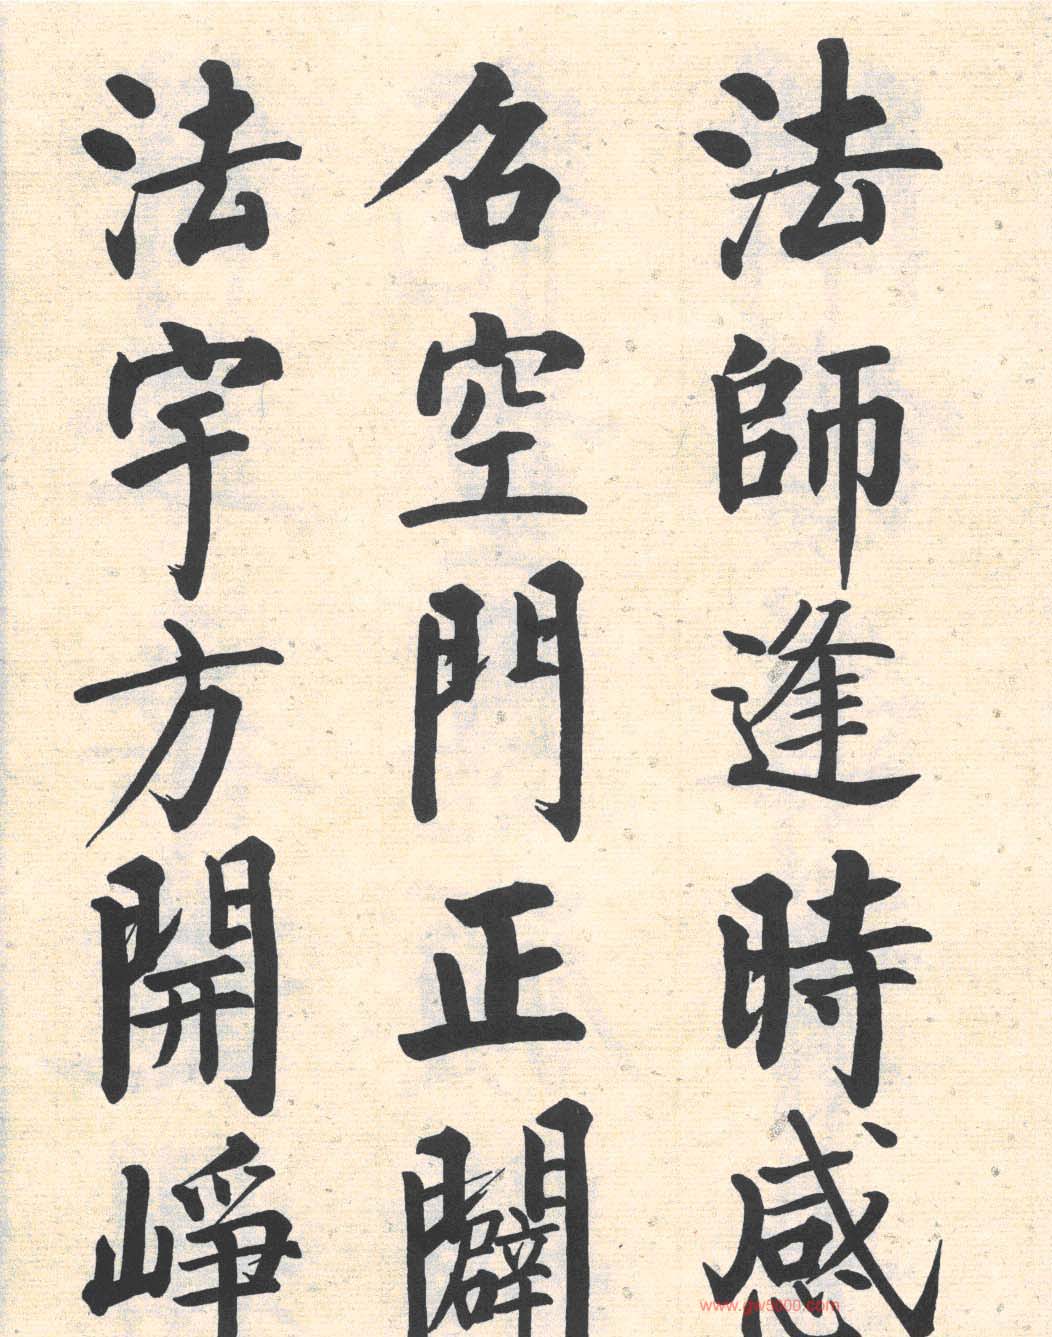 法師逢時感
名空門正闢
法宇方開崢
www.gw5000.com